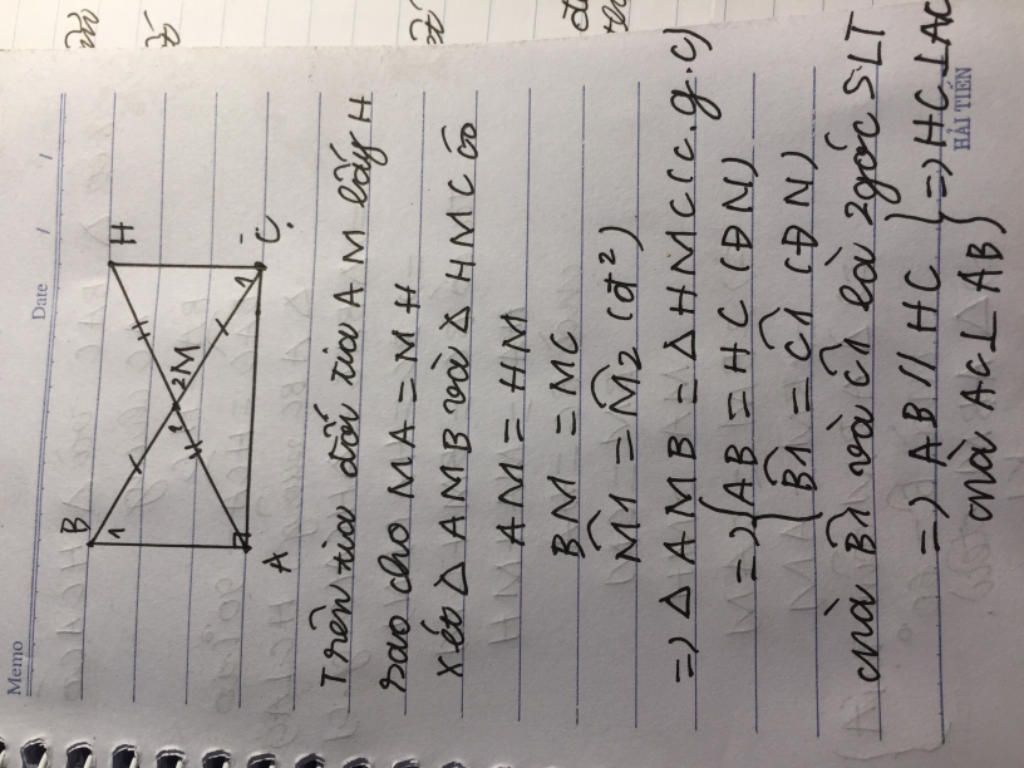 Memo
Date / /
B
H
1
1
2
M
1
A
C
Trên tia đối tia AM lấy H
sao cho MA = MH
Xét Δ AMB và Δ HMC có
AM = HM
BM = MC
M̂1 = M̂2 (đ²)
=) Δ AMB = Δ HMC (c.g.c)
=) { AB = HC (ĐN)
B̂1 = Ĉ1 (ĐN)
mà B̂1 và Ĉ1 là 2 góc SLT
=) AB // HC } =) HC ⊥ AC
mà AC ⊥ AB
HẢI TIẾN